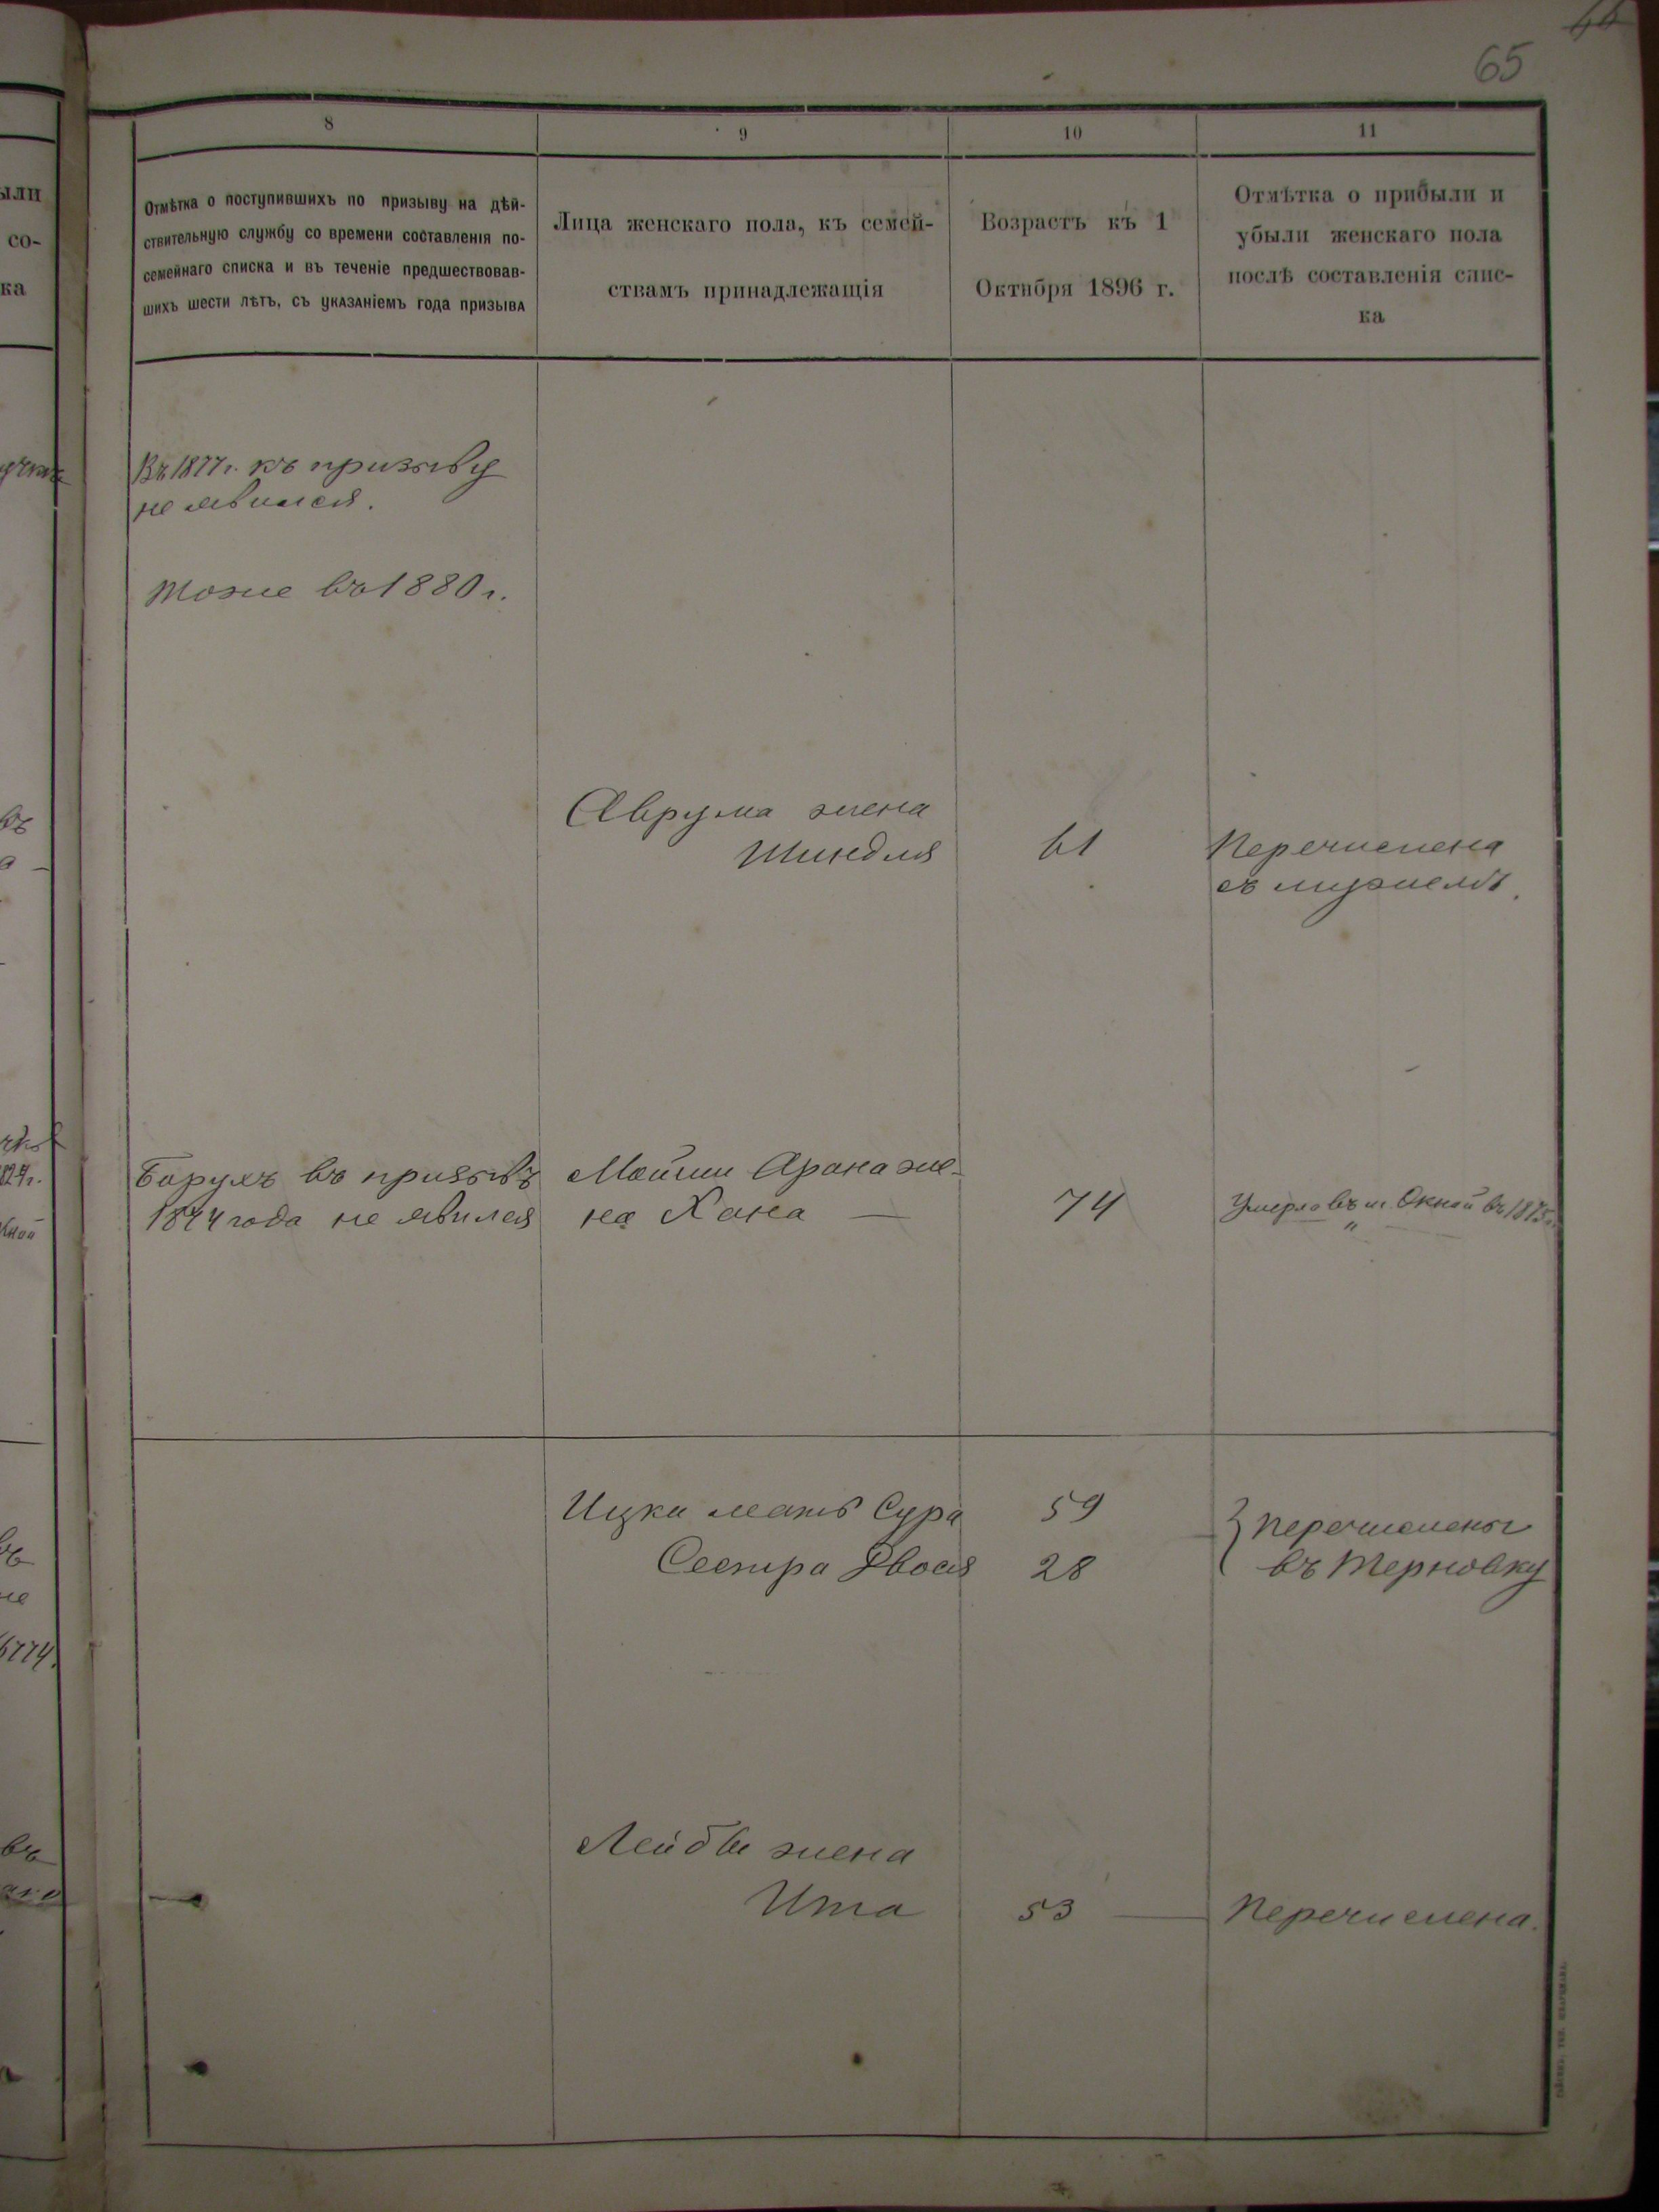 65
8
9
10
11
Отмѣтка о поступившихъ по призыву на дѣй-
ствительную службу со времени составленія по-
семейнаго списка и въ теченіе предшествовав-
шихъ шести лѣтъ, съ указаніемъ года призыва
Лица женскаго пола, къ семей-
ствамъ принадлежащія
Возрастъ къ 1
Октября 1896 г.
Отмѣтка о прибыли и
убыли женскаго пола
послѣ составленія спис-
ка
Въ 1877 г. къ призыву
не явился.
Тоже въ 1880 г.
Аврума жена
Шиндля
61
Перечислена
съ мужемъ.
Борухъ въ призывъ
1874 года не явился
Мошки Арона же-
на Хана —
74
Умерла въ м. Окной въ 1875 г.
Ицки мать Сура
59
Сестра Двося
28
Перечислены
въ Терновку
Лейбы жена
Ита
53 —
Перечислена.